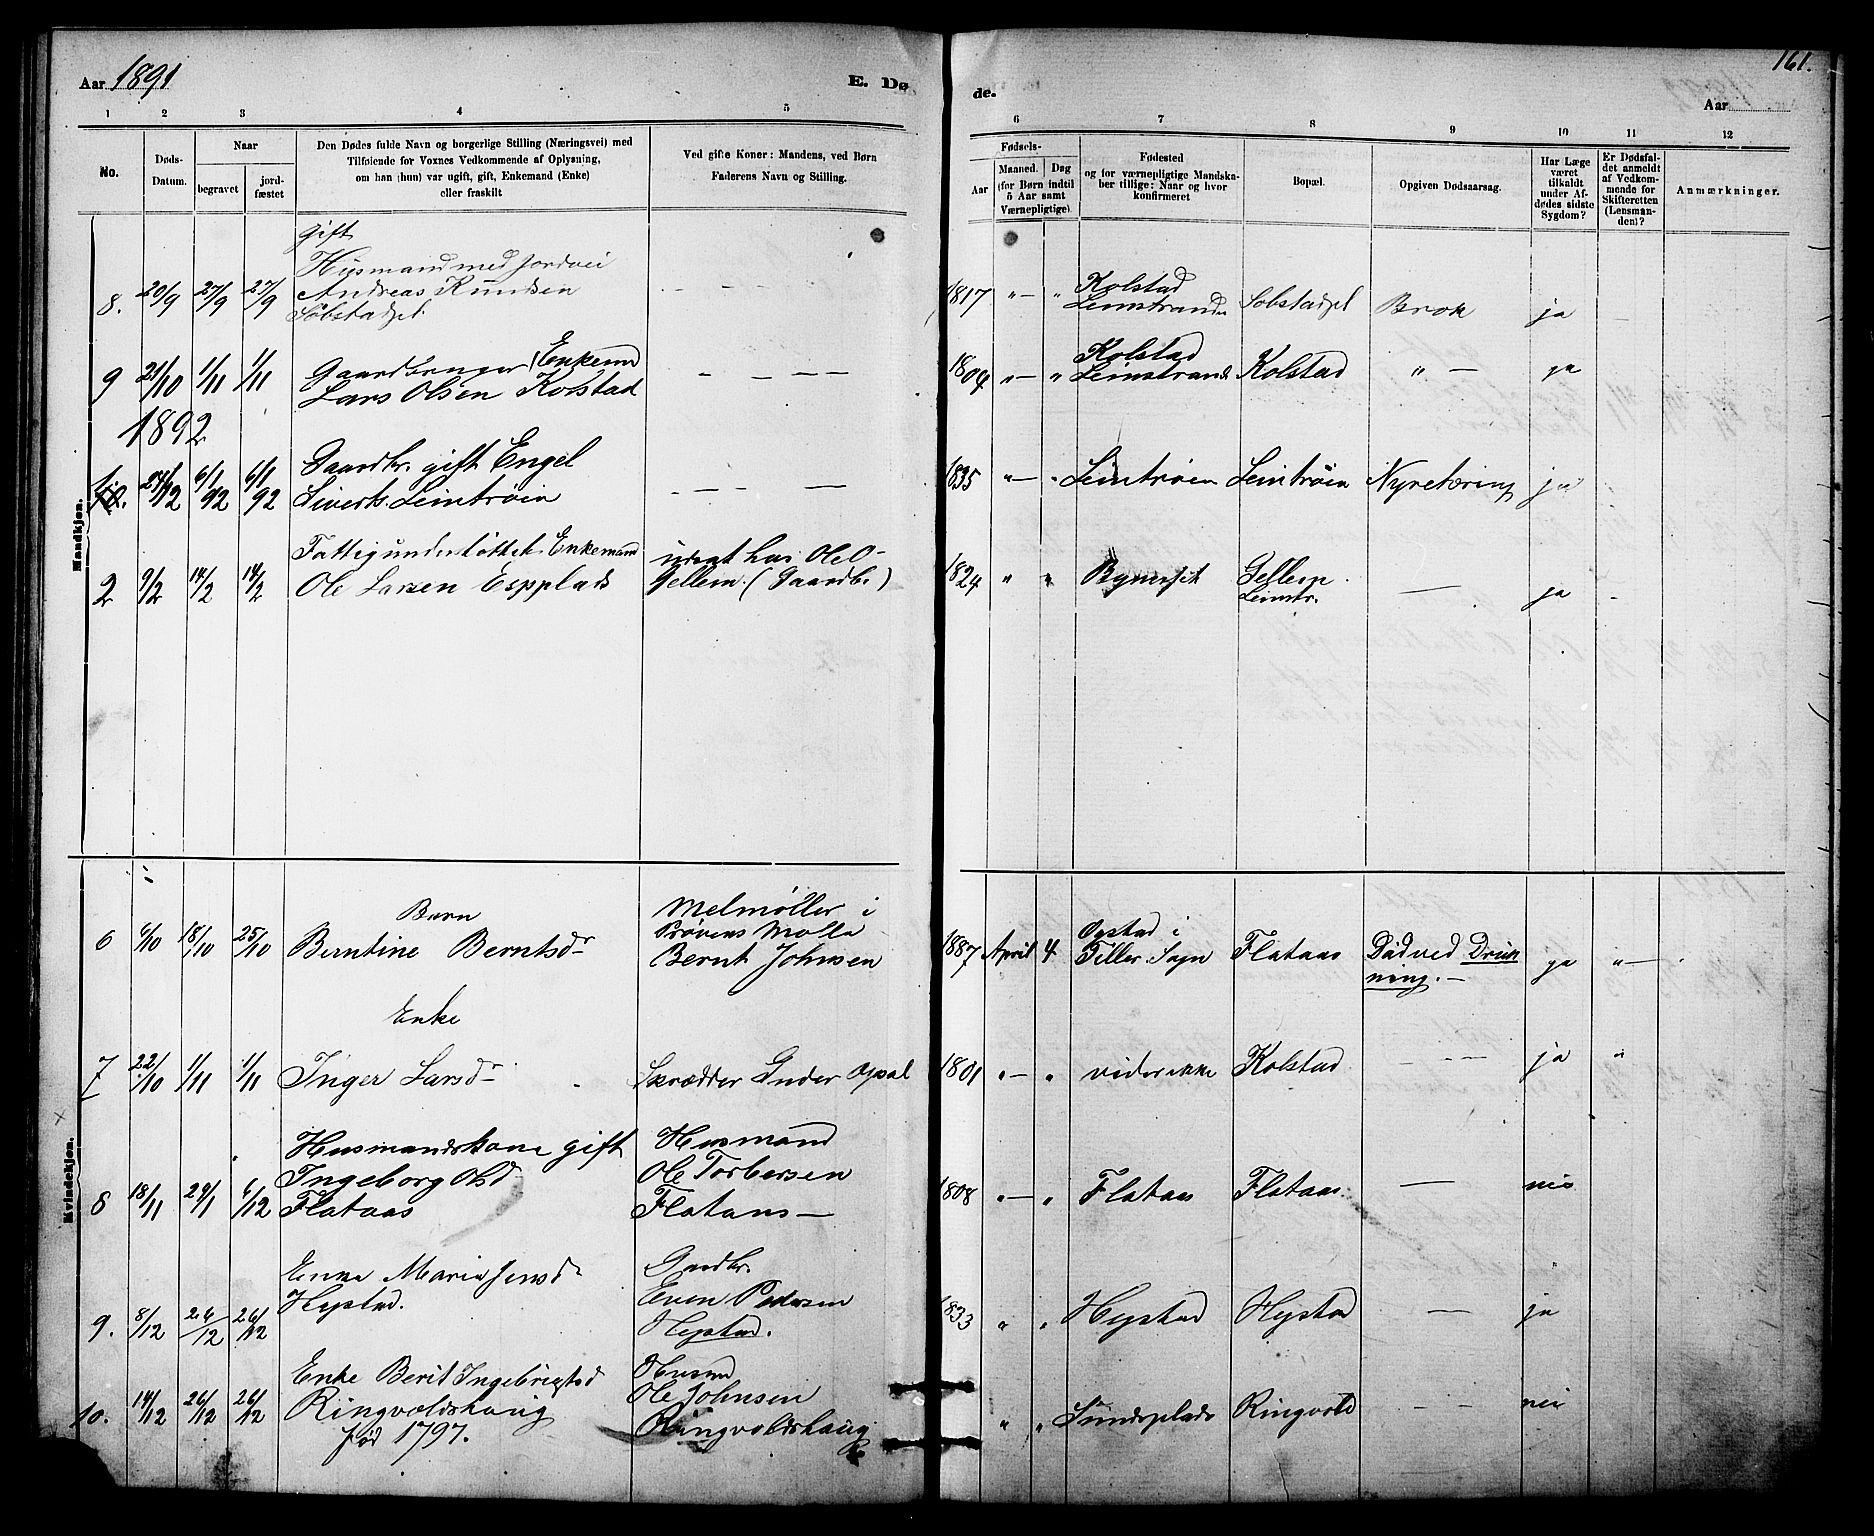 Aar 1891
E. Dø
de.
Aar
161.
1 2 3 4 5 6 7 8 9 10 11 12
No.
Døds-
Datum.
Naar
begravet
jord-
fæstet
Den Dødes fulde Navn og borgerlige Stilling (Næringsvei) med
Tilføiende for Voxnes Vedkommende af Oplysning,
om han (hun) var ugift, gift, Enkemand (Enke)
eller fraskilt
Ved gifte Koner: Mandens, ved Børn
Faderens Navn og Stilling.
Fødsels-
Aar
Maaned. Døg
(for Børn indtil
5 Aar samt
Værnepligtige).
Fødested
og for værnepligtige Mandska-
ber tillige: Naar og hvor
konfirmeret
Bopæl.
Opgiven Dødsaarsag.
Har Læge
været
tilkaldt
under Af-
dødes sidste
Sygdom?
Er Dødsfal-
det anmeldt
af Vedkom-
mende for
Skifteretten
(Lensman-
den)?
Anmærkninger.
Mandkjøn.
gift
Husmand med Jordvei
8. 20/9 27/9 27/9 Andreas Knudsen
Sobstadpl.
1817 Kolstad
Leinstranden Sobstadpl Brok ja
9 21/10 1/11 1/11 Gaardbruger (Enkemd
Lars Olsen Kolstad
1804 Kolstad
Leinstrand Kolstad " — ja
1892
24/12 6/1 92 6/1 92 Gaardbr. gift Engel
Siverts. Leintrøen
1835 Leintrøen Leintrøen Nyretæring ja
2 9/2 14/2 14/2 Fattigunderstøttet Enkemand
Ole Larsen Espplads
hos Ole O
Gellem. (Gaardb.)
1824 " " Bynesset Gellem
Leinstr. — ja
Kvindekjøn.
6 6/10 18/10 25/10 Barn
Berntine Berntsdr
Melmøller i
Prøvens Mølle
Bernt Johnsen
1887 April 4 Opstad i
Tiller Sogn Flataas Død ved Druk-
ning. — ja " —
7 22/10 1/11 1/11 Enke
Inger Larsdr
Skrædder Gunder Opal
1801 " — " vides ikke Kolstad — — ja "
8 18/11 29/1 6/12 Husmandskone gift
Ingeborg Olsd
Flataas
Husmand
Ole Torbersen
Flataas —
1808 " — " Flataas Flataas — nei
9. 8/12 26/12 26/12 Enke Maria Jensdr
Hestad.
Gaardbr.
Even Pedersen
Hestad.
1833 " " Hestad Hestad — ja
10. 14/12 26/12 26/12 Enke Berit Ingebrigtsd
Ringvoldshaug
fød 1797.
Husmd
Ole Johnsen
Ringvoldshaug
" " Sundsplads Ringvold — — nei